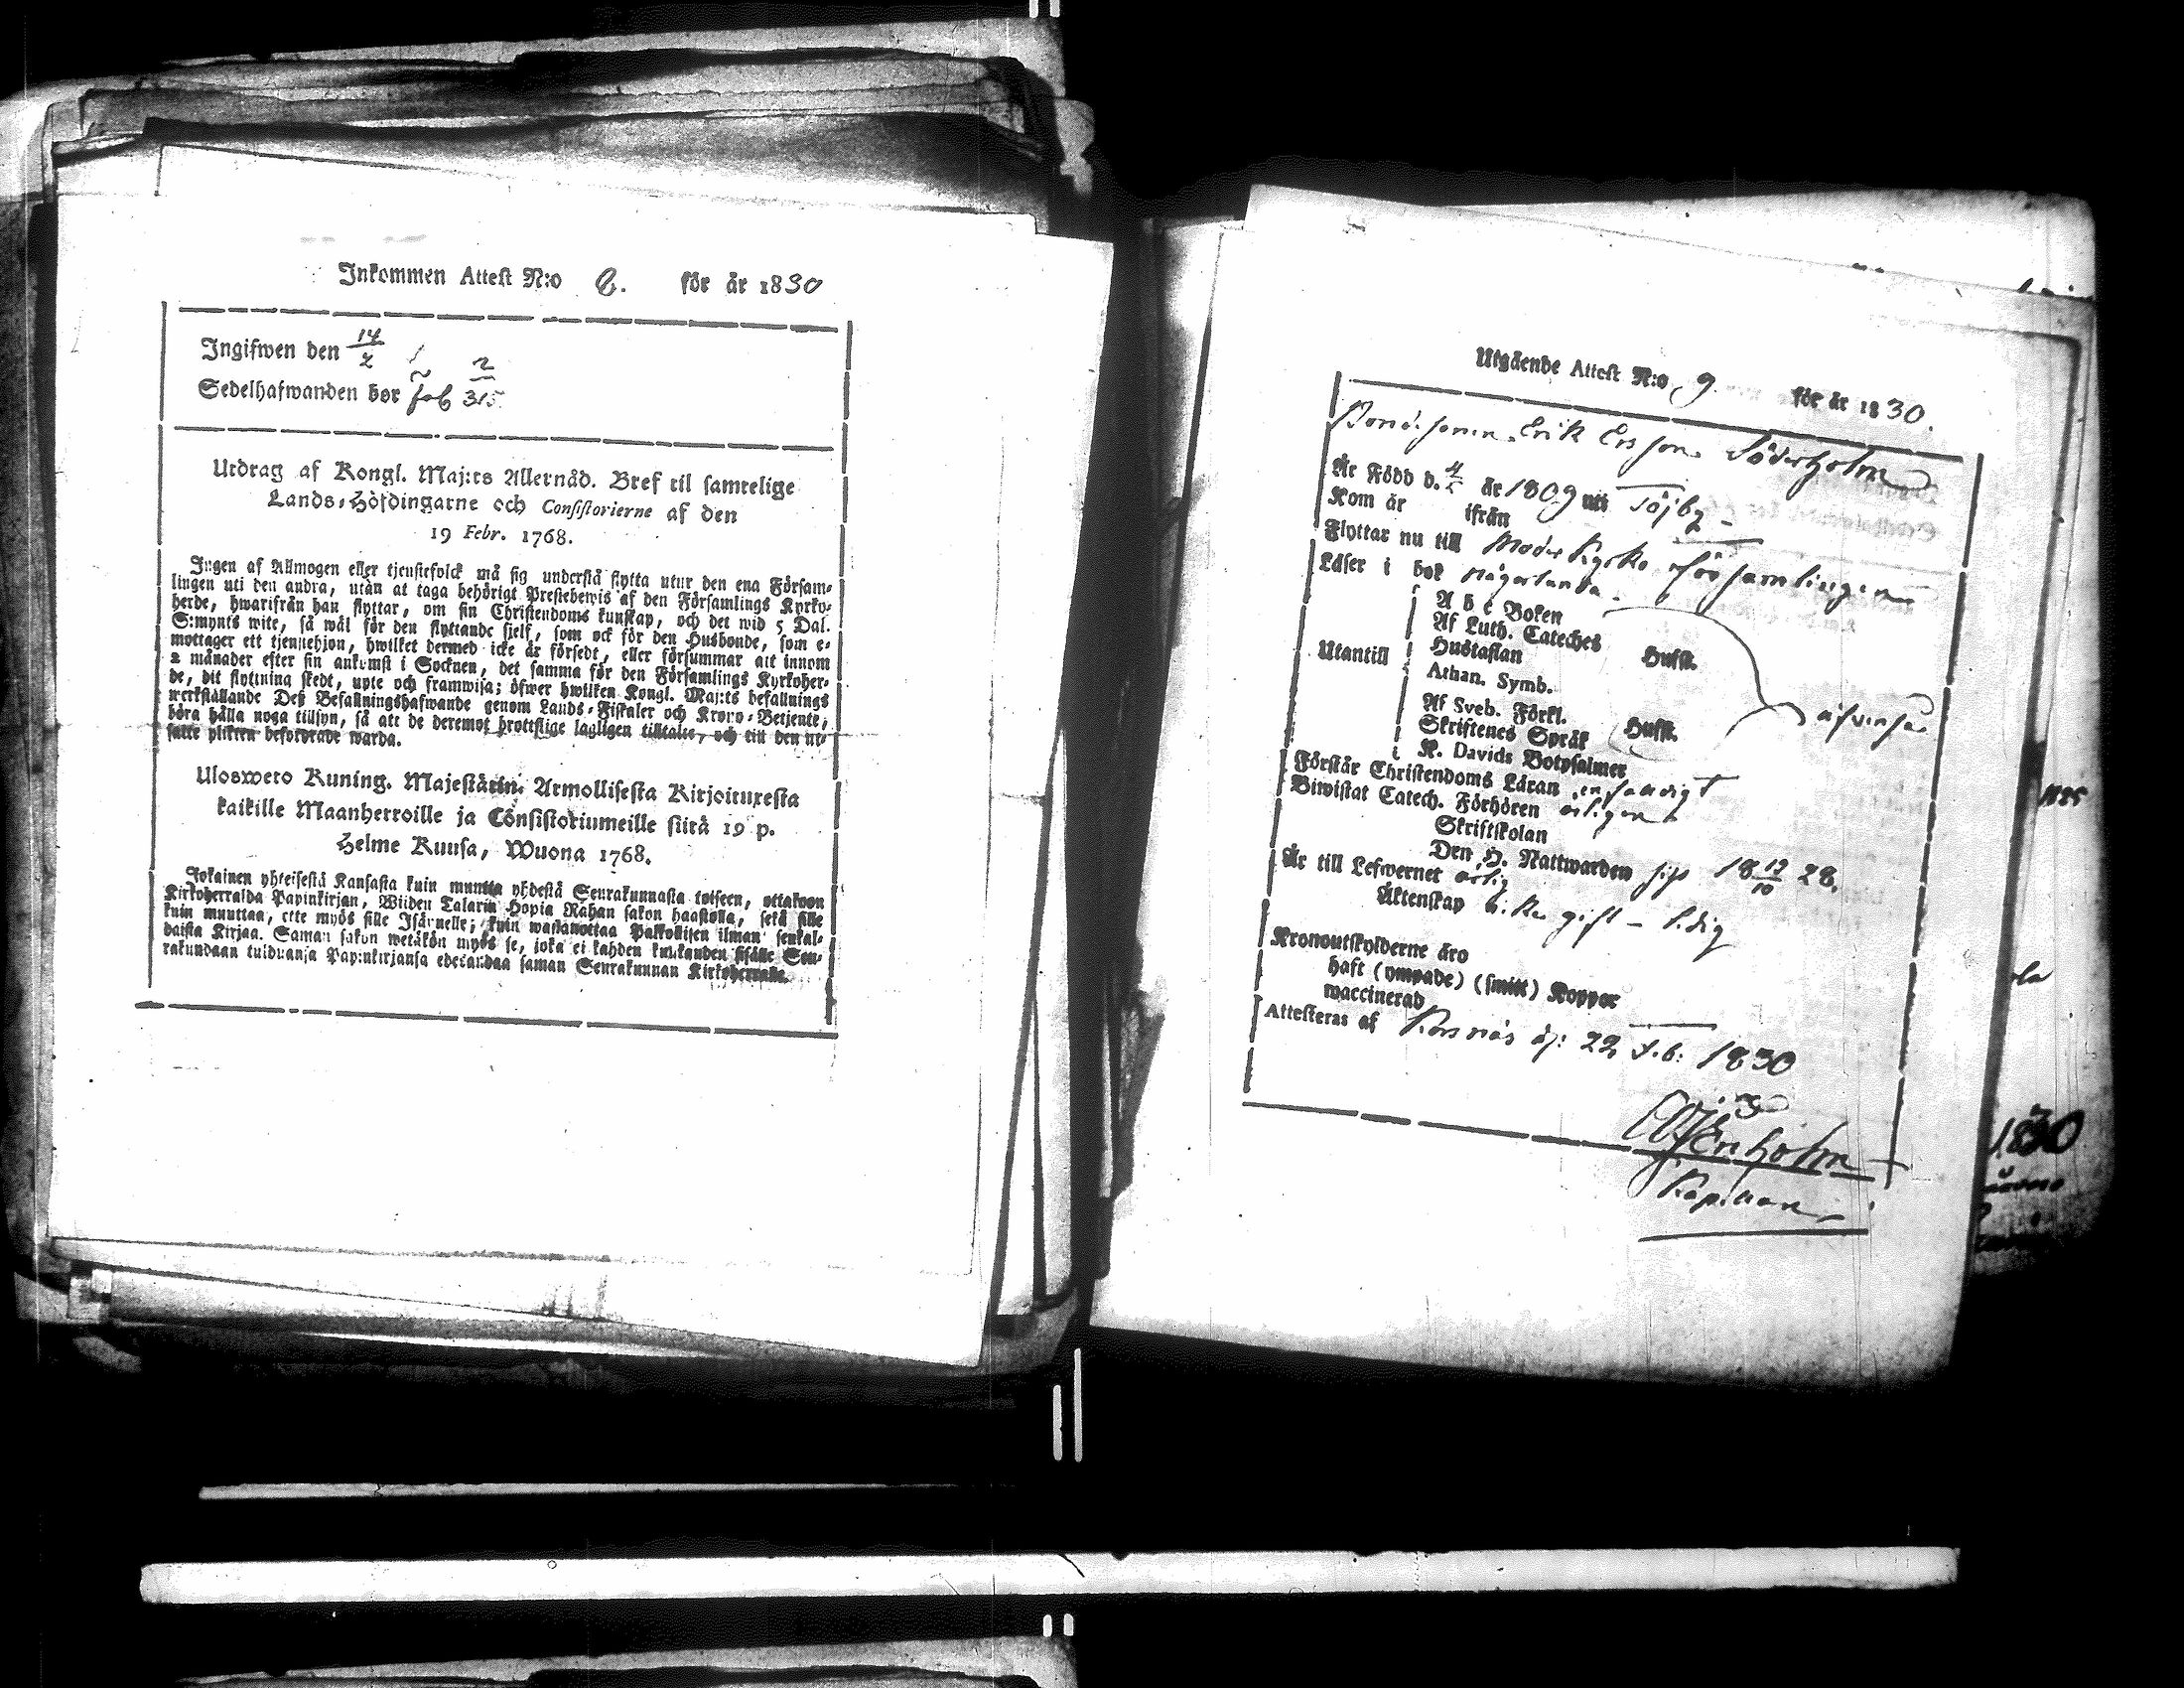 Inkommen Attest N:o 8. för år 1830
Ingifwen den 14/2
Sedelhafwanden bor fol 315
Utdrag af Kongl. Maj:ts Allernåd. Bref til samtelige
Lands-Höfdingarne och Consistorierne af den
19 Febr. 1768.
Ingen af Allmogen eller tjenstefolck må sig understå flytta utur den ena Försam-
lingen uti den andra, utan at taga behörigt Prestebewis af den Församlings Kyrko-
herde, hwarifrån han flyttar, om sin Christendoms kunskap, och det wid 5 Dal.
S:mynts wite, så wäl för den flyttande sielf, som ock för den Husbonde, som e-
mottager ett tjenstehjon, hwilket dermed icke är försedt, eller försummar att innom
2 månader efter sin ankomst i Socknen, det samma för den Församlings Kyrkoher-
de, dit flyttning skedt, upte och framwisa; öfwer hwilken Kongl. Maj:ts befallnings
werkställande Deß Befallningshafwande genom Lands-Fiskaler och Krono-Betjente,
böra hålla noga tillsyn, så att de deremot brottslige lagligen tilltalas, och till den ut-
satte plikten befordrade warda.
Ulosweto Kuning. Majestätin: Armollisesta Kirjoituxesta
kaikille Maanherroille ja Consistoriumeille siitä 19 p.
Helme Kuusa, Wuona 1768.
Jokainen yhteisestä Kansasta kuin muutta yhdestä Seurakunnasta toiseen, ottakoon
Kirkoherralda Papinkirjan, Wiiden Talarin Hopia Rahan sakon haastolla, sekä sille
kuin muuttaa, ette myös sille Isännelle, kuin wastanottaa Palkollisen ilman senkal-
daista Kirjaa. Saman sakon wetäkön myös se, joka ei kahden kuukauden sisälle Seu-
rakundaan tulduansa Papinkirjansa edesandaa saman Seurakunnan Kirkoherralle.
Utgående Attest N:o 9. för år 1830.
Bondesonen Erik Ersson Söderholm
Är Född d. 4/5 år 1809 uti Töjby
Kom år ifrån
Flyttar nu till Moder Kyrko församlingen
Läser i bok någorlunda.
A b c Boken
Af Luth. Cateches
Utantill Hustaflan Hufst.
Athan. Symb.
Af Sveb. Förkl.
Skriftenes Språk Hufst.
K. Davids Botpsalmer
Förstår Christendoms Läran enfaldigt
Biwistat Catech. Förhören årligen
Skriftskolan
Den H. Nattwarden sist 18 12/10 28.
Är till Lefwernet ärlig
Äktenskap icke gift - ledig
Kronoutskylderne äro
haft (ympade) (smitt) Koppor
waccinerad
Attesteras af Korsnäs d: 22 Feb: 1830
Kapellan